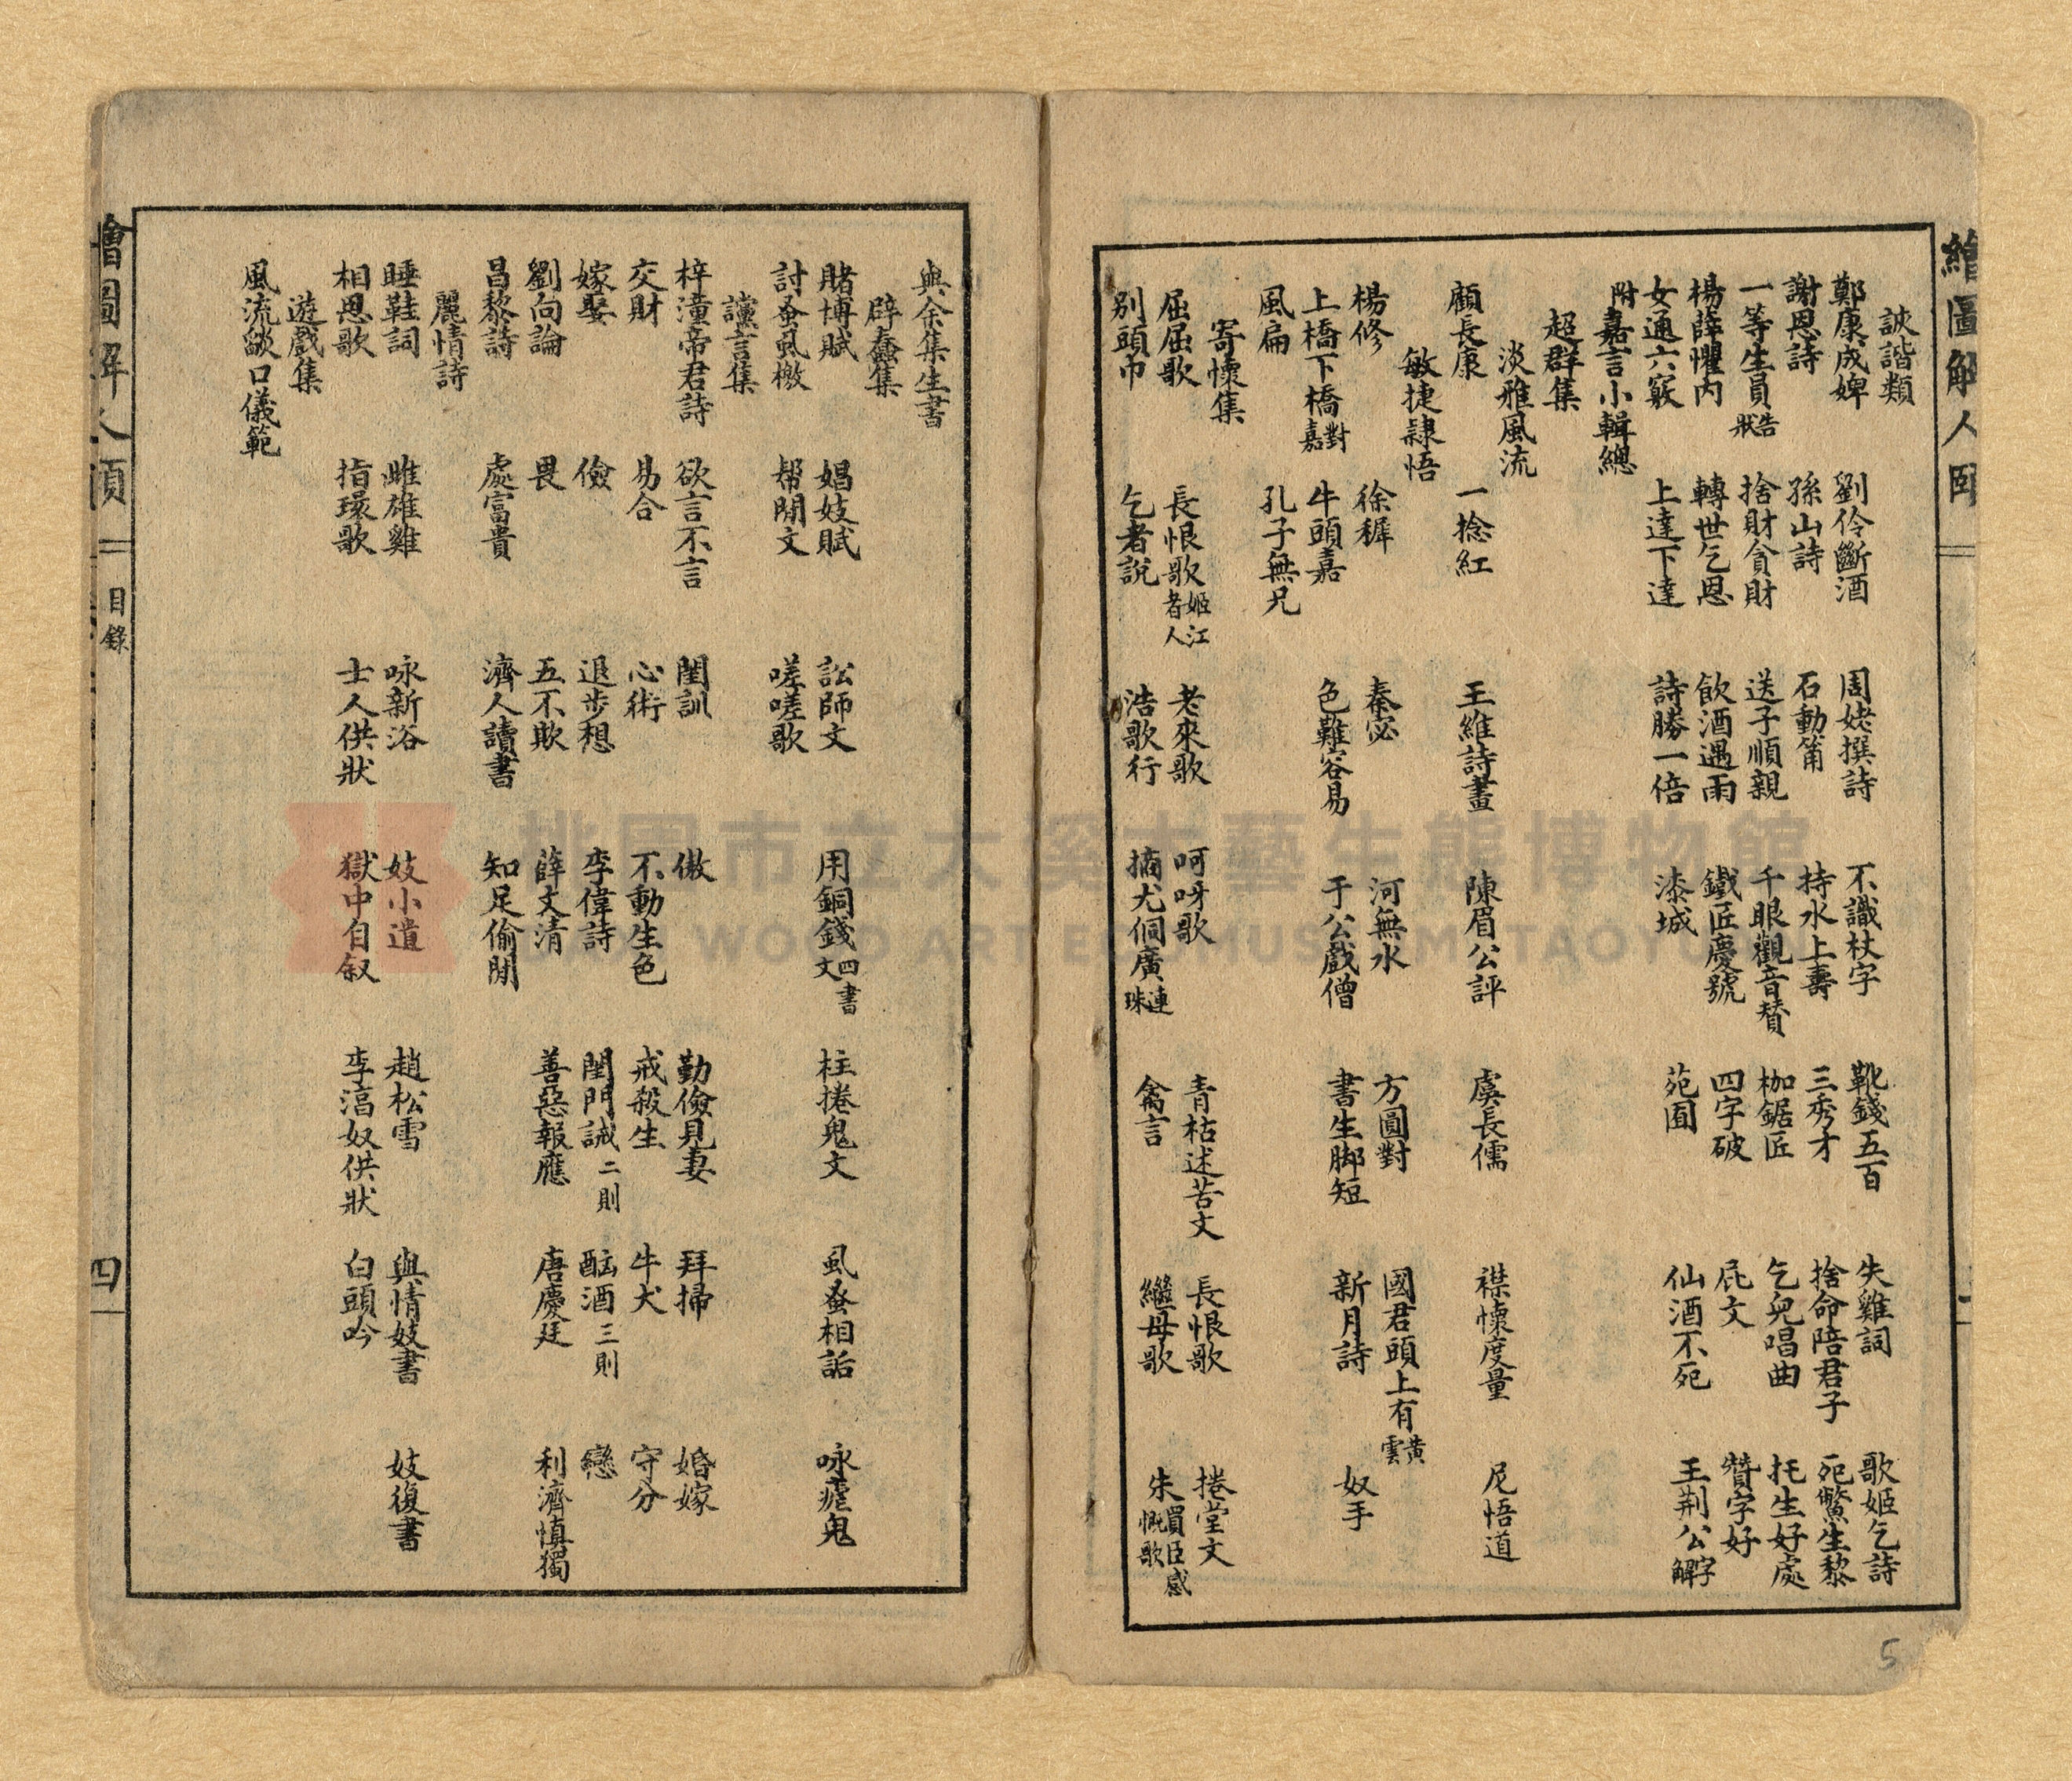 繪圖解人頤
詼諧類
鄭康成婢 劉伶斷酒 周姥撰詩 不識杖字 靴錢五百 失雞詞 歌姬乞詩
謝恩詩 孫山詩 石動筩 持水上壽 三秀才 捨命陪君子 死鱉生黎
一等生員告狀 捨財貪財 送子順親 千眼觀音贊 枷鋸匠 乞兒唱曲 托生好處
楊薛懼内 轉世乞恩 飲酒遇雨 鐵匠慶號 四字破 屁文 贊字好
女通六竅 上達下達 詩勝一倍 漆城 苑囿 仙酒不死 王荆公字解
附嘉言小輯總
超群集
淡雅風流
顧長康 一捻紅 王維詩畫 陳眉公評 虞長儒 襟懷度量 尼悟道
敏捷謙悟
楊修 徐穉 秦宓 河無水 方圓對 國君頭上有黃雲
上橋下橋對嘉 牛頭嘉 色難容易 于公戲僧 書生脚短 新月詩 奴手
風扁 孔子無兄
寄懷集
屈屈歌 長恨歌姬江者人 老來歌 呵呀歌 青枯述苦文 長恨歌 捲堂文
别頭巾 乞者說 浩歌行 摘尤侗廣連珠 禽言 繼母歌 朱買臣感慨歌
5
與余集生書
辟蠢集
賭博賦 娼妓賦 訟師文 用銅錢四書文 柱捲鬼文 虱蚤相詬 咏瘧鬼
討蚤虱檄 帮閒文 嗟嗟歌
讜言集
梓潼帝君詩 欲言不言 閨訓 傲 勤儉見妻 拜掃 婚嫁
交財 易合 心術 不動生色 戒殺生 牛犬 守分
嫁娶 儉 退步想 李偉詩 閨門誡二則 酗酒三則 戀
劉向論 畏 五不欺 薛文清 善惡報應 唐慶廷 利濟慎獨
昌黎詩 處富貴 濟人讀書 知足偷閒
麗情詩
睡鞋詞 雌雄雞 咏新浴 妓小遺 趙松雪 與情妓書 妓復書
相思歌 指環歌 士人供狀 獄中自叙 李湻奴供狀 白頭吟
遊戲集
風流皺口儀範
繪圖解人頤 目錄 四
桃園市立大溪木藝生態博物館
WOOD ART ECOMUSEUM, TAOYUAN